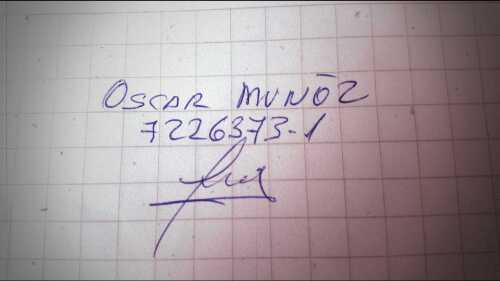 OSCAR MUÑOZ
7226373-1